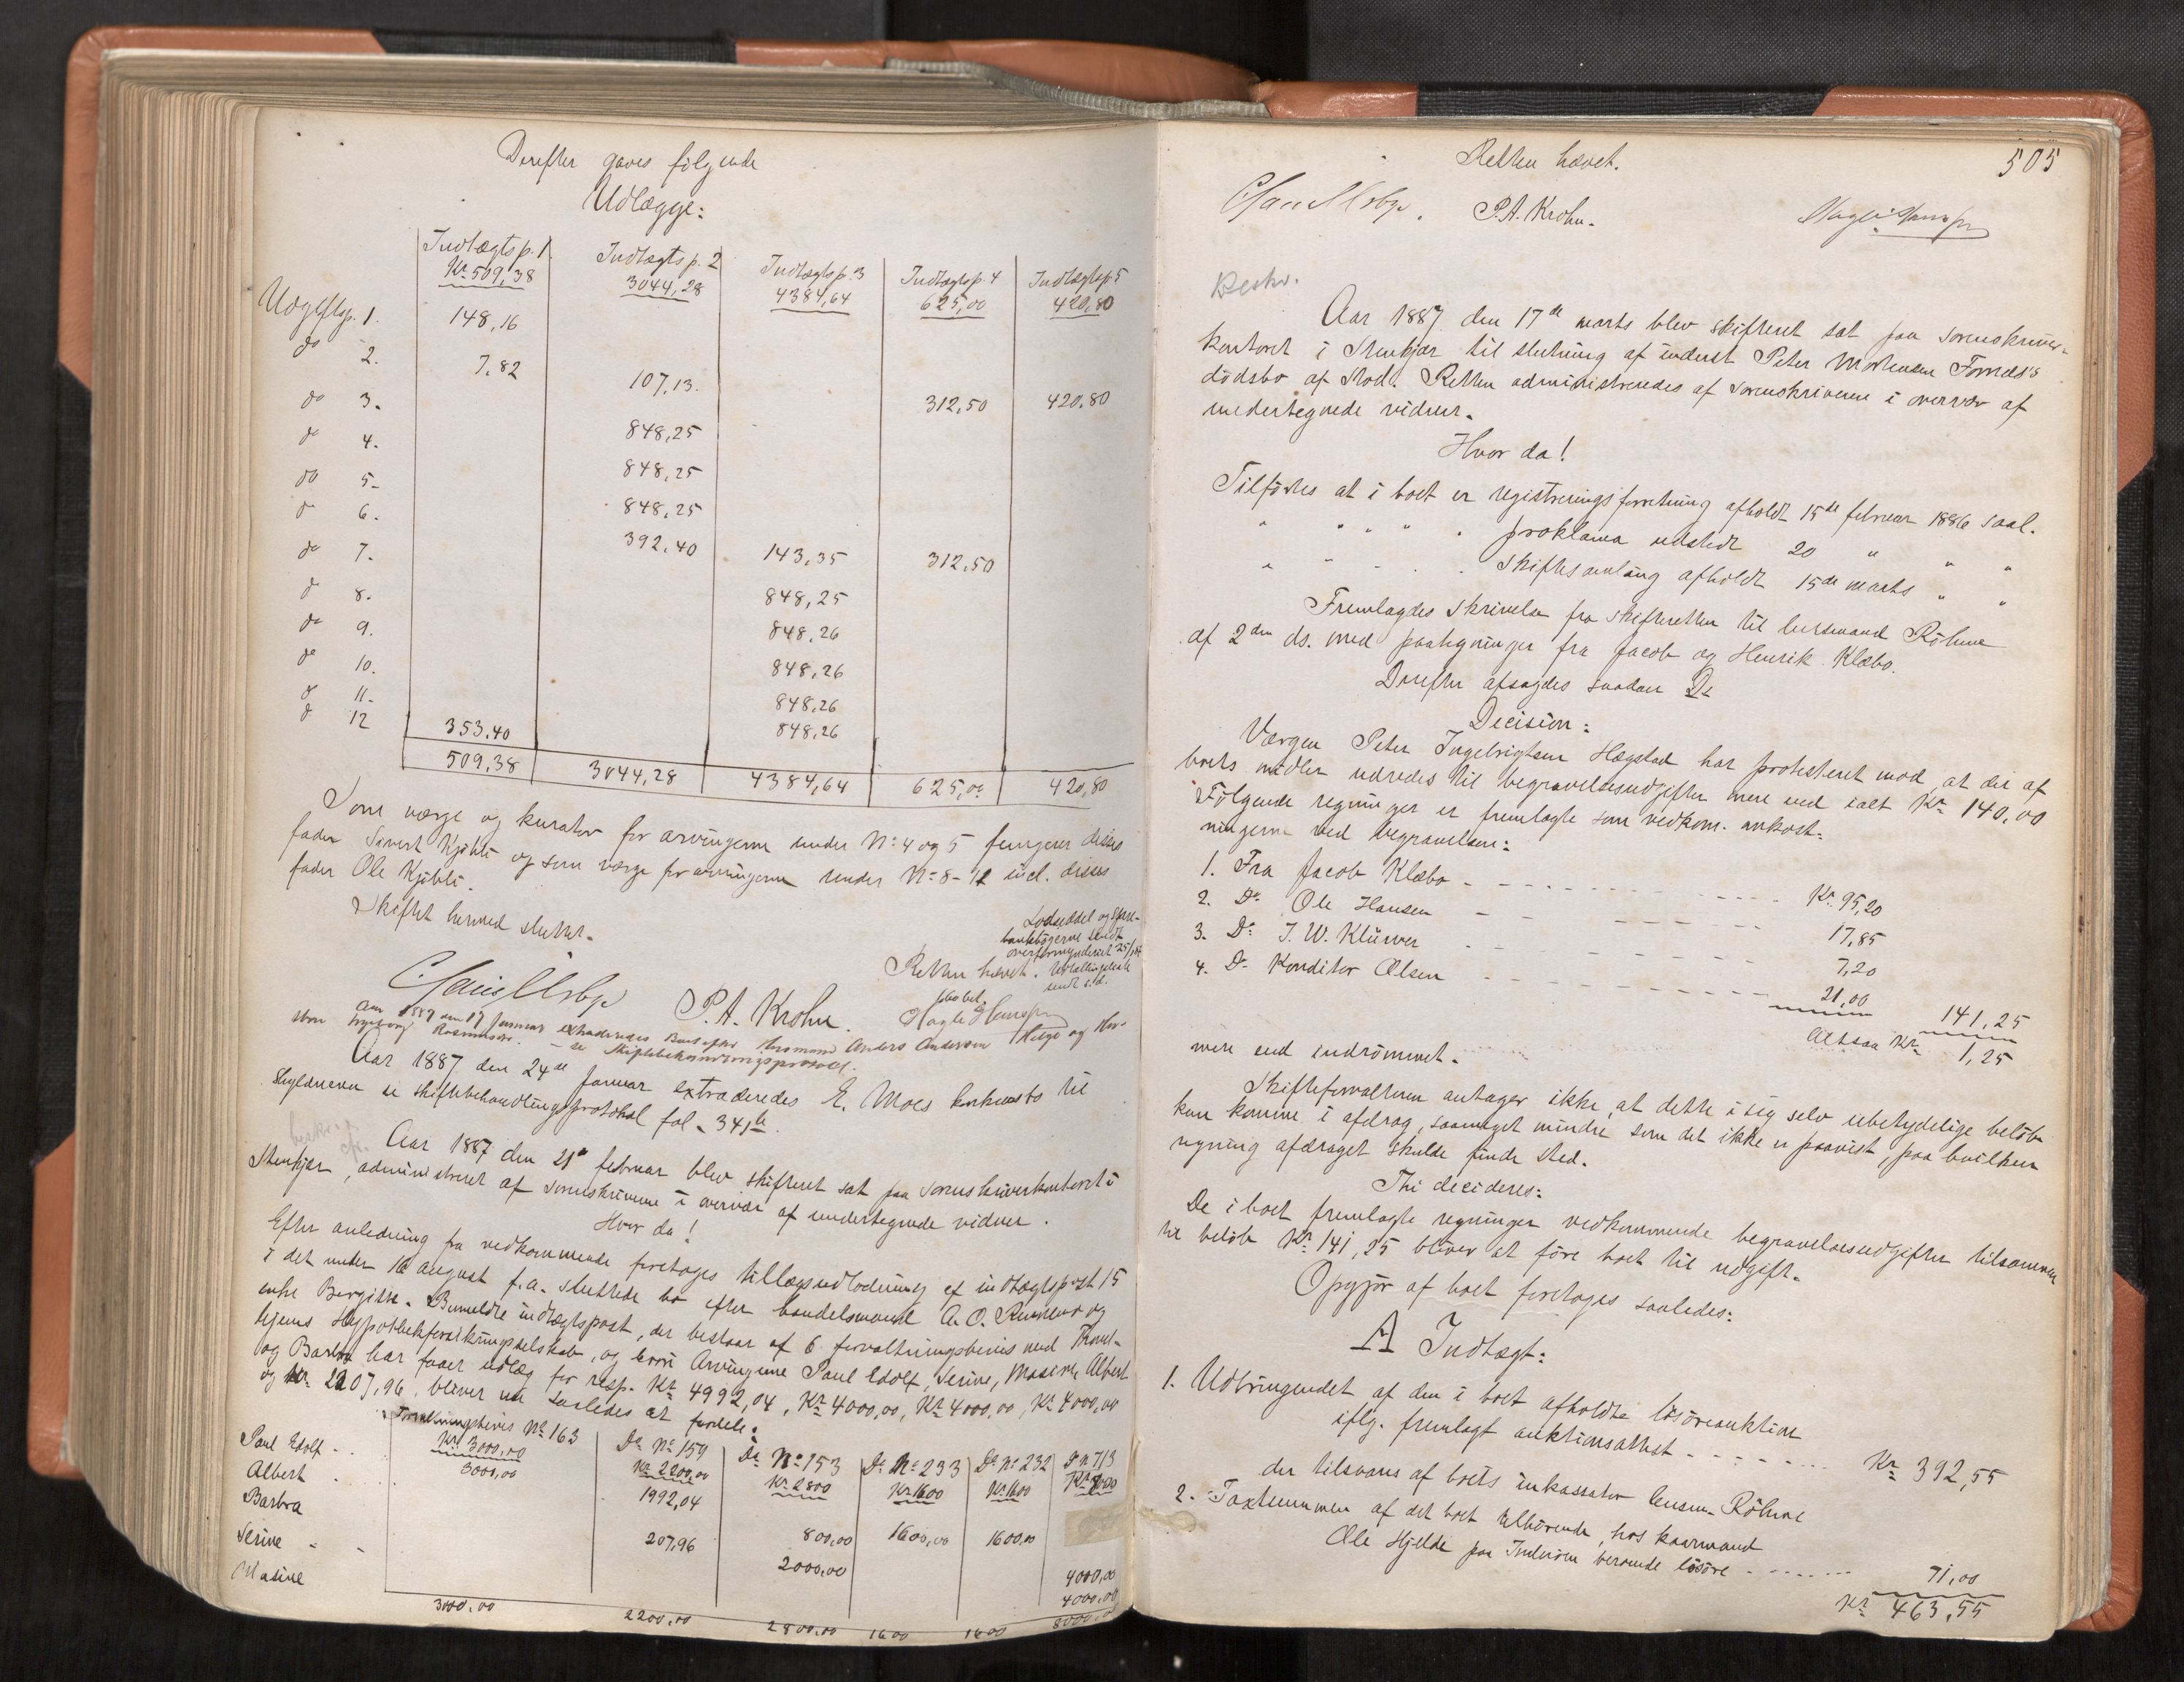 Derefter gaves følgende
Udlægge:
Indtægtsp. 1. Indtægtsp. 2 Indtægtsp. 3 Indtægtsp. 4 Indtægtsp. 5
Kr. 509,38 3044,28 4384,64 625,00 420,80
Udgiftsp. 1. 148,16
do 2. 7,82 107,13. 312,50 420,80
do 3. 848,25
do 4. 848,25
do 5. 848,25
do 6. 392,40 143,35 312,50
do 7. 848,25
do 8. 848,26
do 9. 848,26
do 10. 848,26
do 11. 848,26
do 12 353,40
509,38 3044,28 4384,64 625,00 420,80
Som værge og kurator for arvingerne under No 4 og 5 fungerer disses
fader Sivert Kjöhli og som værge for arvingerne under No 8-12 incl. disses
fader Ole Kjöhli.
Skiftet hermed sluttet.
Lodseddel og Spare-
bankbøgerne sendt
overformynderiet 25/1 87
Retten hævet.
P.A. Krohn.
Aar 1887 den 17 Januar extraderedes Boet efter Husmand Anders Andersen Helge og Hu-
stru Ingeborg Rasmusdr. - se Skiftebehandlingsprotocol.
Aar 1887 den 24de Januar extraderedes E. Moes konkursbo til
Skyldneren se skiftebehandlingsprotokol fol. 341b.
Aar 1887 den 21de februar blev skifteret sat paa sorenskriverkontoret i
Stenkjær, administreret af sorenskriveren i overvær af undertegnede vidner.
Hvor da!
Efter anledning fra vedkommende foretages tillægsudlodning af indtægtspost 15
i det under 16 august f.a. sluttede bo efter handelsmand A. O. and og
enke Bergitte. Bemeldte indtægtspost, der bestaar af 6 forvaltningsbevis med Thrond-
hjems Hypothekforsikringsselskab, og hvori Arvingerne Paul Edolf, Serine, Masine, Albert
og Barbra har faaet udlæg for resp. Kr 4992,04, Kr 4000,00, Kr 4000,00, Kr 4000,00
og Kr. 2207,96, bliver nu saaledes at fordele:
Forvaltningsbevis No 163 Do No 159 Do No 153 Do No 233 Do No 232 Do No 713
Kr. 3000,00 Kr 2200,00 Kr 2800 Kr 1600 Kr 1600 Kr 8000
Paul Edolf 3000,00 1992,04
Albert 800,00 1600,00 1600,00
Barbra 207,96 2000,00
Serine 4000,00
Masine 4000,00
3000,00 2200,00 2800,00 1600 1600 8000,00
505
Retten hævet.
P.A. Krohn.
Beskr.
Aar 1887 den 17de marts blev skifteret sat paa sorenskriver-
kontoret i Stenkjær til slutning af inderst Peter Mortensen Fornæs's
dødsbo af Stod. Retten administreredes af sorenskriveren i overvær af
undertegnede vidner.
Hvor da!
Tilførtes at i boet er registreringsforretning afholdt 15de februar 1886 saal.
" " " " . proklama udstedt 20 " " "
" " . . . Skiftesamling afholdt 15de marts " "
Fremlagdes skrivelse fra skifteretten til lensmand Röhme
af 2den ds. med paategninger fra Jacob og Henrik Klæbo.
Derefter afsagdes saadan
Decision:
Værgen Peter Ingebrigtsen Hægstad har protesteret mod, at der af
boets midler udredes til begravelsesudgifter mere end ialt Kr 140,00
Følgende regninger er fremlagte som vedkom. omkost-
ningerne ved begravelsen:
1. Fra Jacob Klæbo - - - Kr. 95,20
2. Do Ole Hansen - - - 17,85
3. Do J. W. Klüwer - - - 7,20
4. Do Konditor Olsen - - - 21,00 141,25
Altsaa Kr 1,25
mere end indrömmet.
Skifteforvalteren antager ikke, at dette i sig selv ubetydelige beløb
kan komme i afdrag, saameget mindre som det ikke er paavist, paa hvilken
regning afdraget skulde finde sted.
Thi decideres:
De i boet fremlagte regninger vedkommende begravelsesudgifter tilsammen
til beløb Kr 141,25 bliver at føre boet til udgift.
Opgjør af boet foretages saaledes:
A Indtægt:
1. Udbringendet af den i boet afholdte løsøreauktion
iflg. fremlagt auktionsattest - - - Kr 392,55
der tilsvares af boets inkassator lensm. Röhme
2. Taxtsummen af det boet tilhørende, hos kaarmand
Ole Hjelde paa Inderøen beroende løsøre - - - 71,00
Kr 463,55